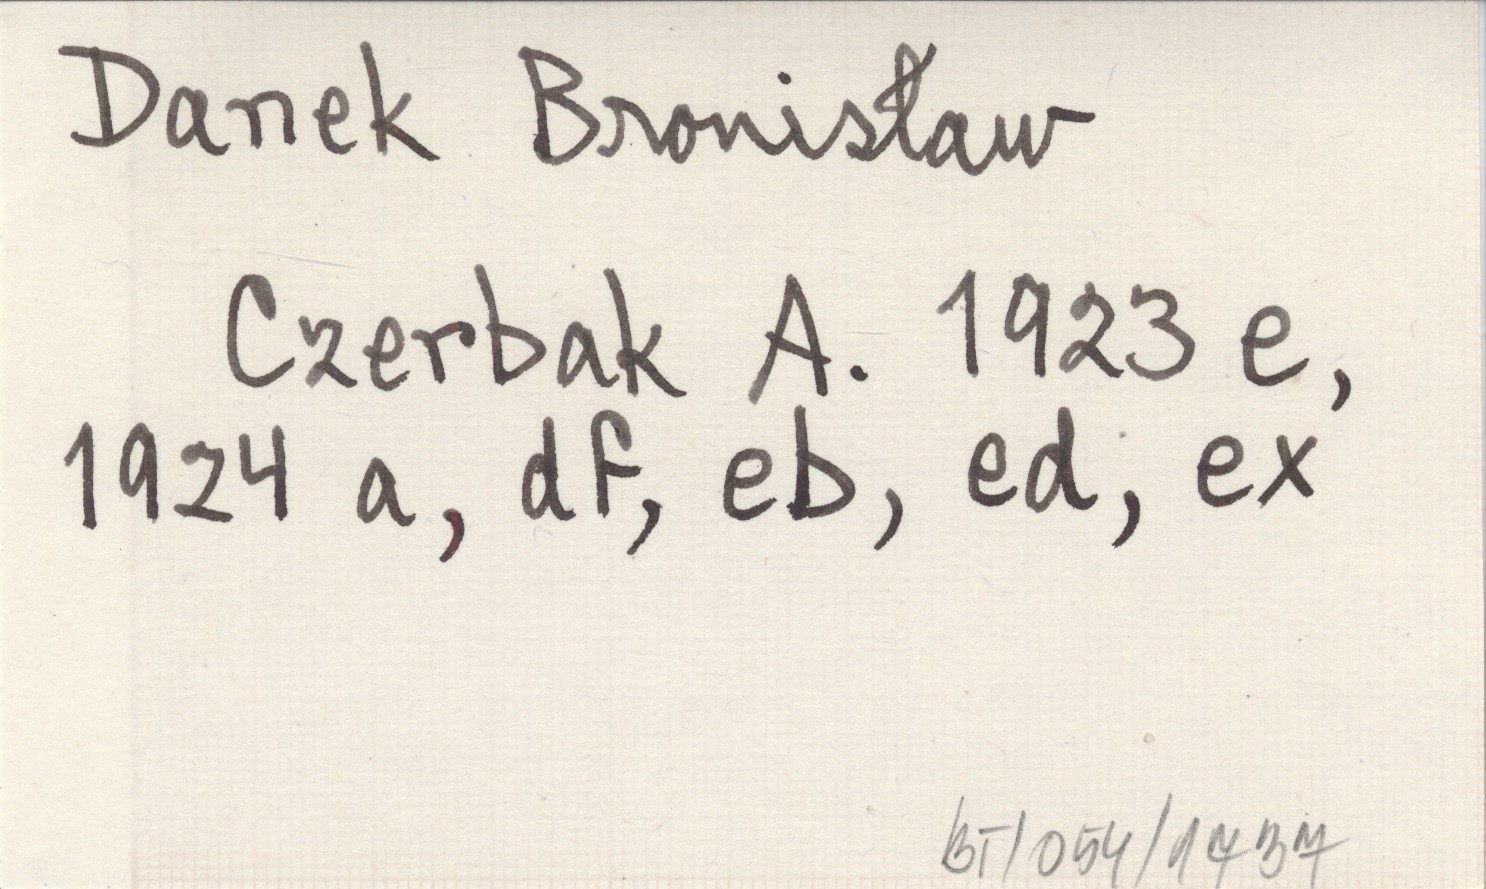 Danek Bronisław
Czerbak A. 1923 e,
1924 a, df, eb, ed, ex
BT/054/1737